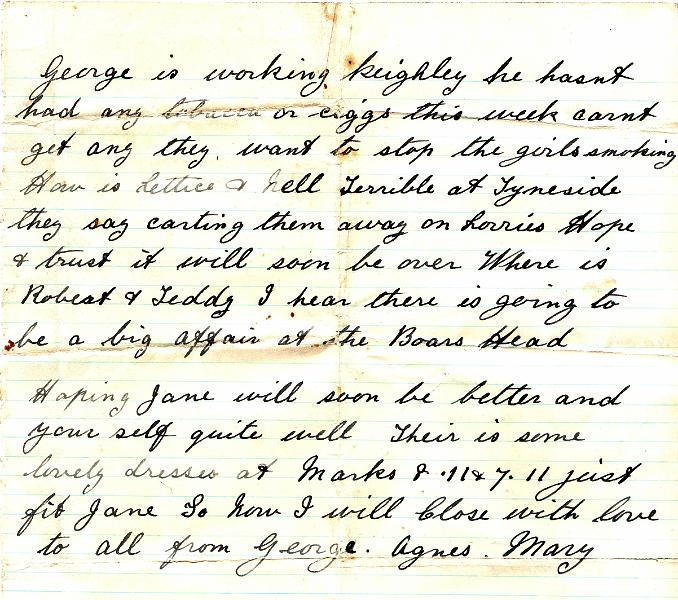 George is working Keighley he hasnt
had any tobacco or ciggs this week carnt
get any they want to stop the girls smoking
How is Lettice & Nell Terrible at Tyneside
they say carting them away on Lorries Hope
& trust it will soon be over Where is
Robert & Teddy I hear there is going to
be a big affair at the Boars Head
Hoping Jane will soon be better and
your self quite well Their is some
lovely dresses at Marks & .11 & 7.11 just
fit Jane So Now I will Close with love
to all from George. Agnes. Mary